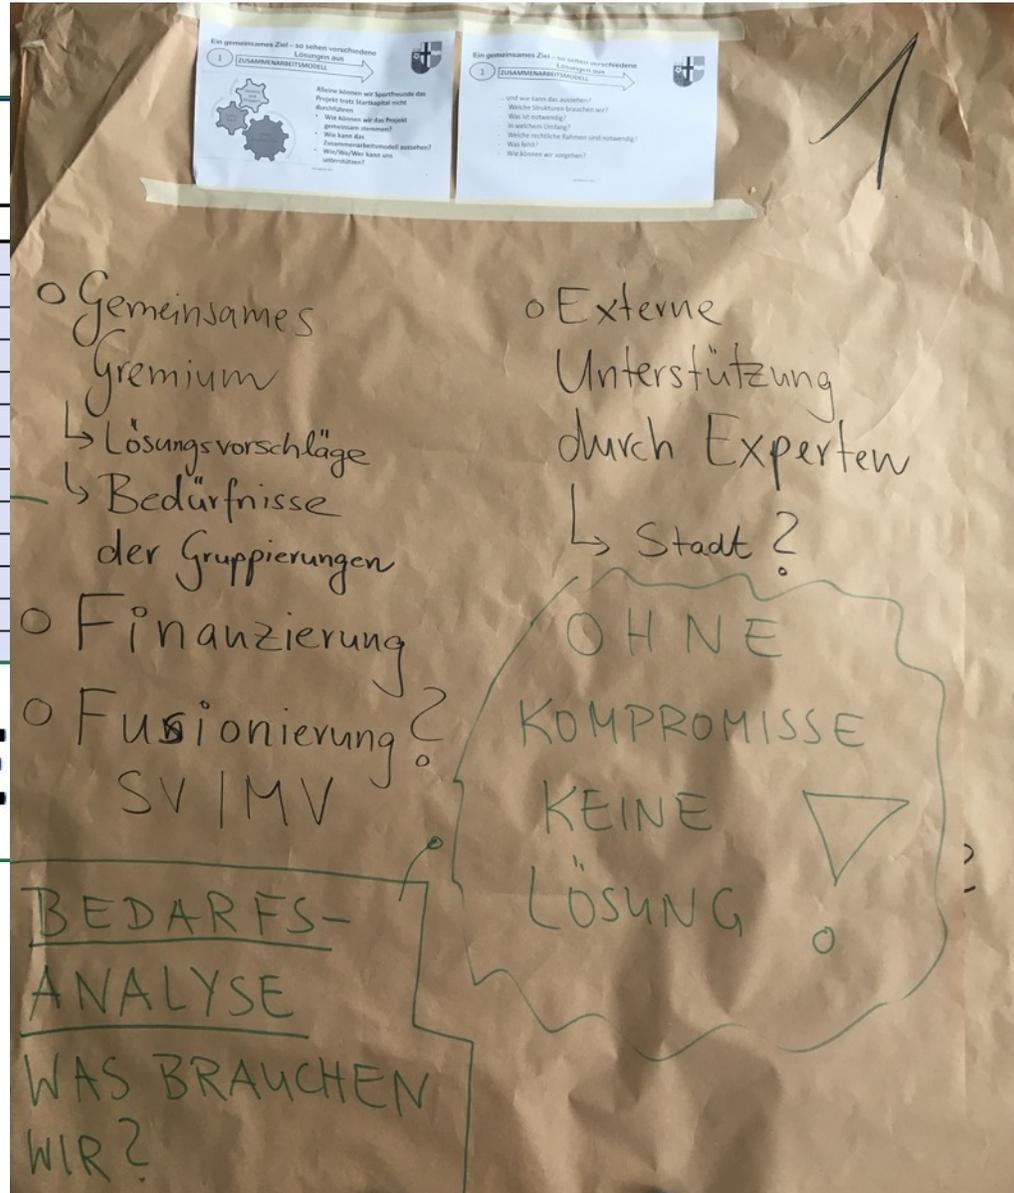 Ein gemeinsames Ziel – so sehen verschiedene
Lösungen aus
1
ZUSAMMENARBEITSMODELL
Alleine können wir Sportfreunde das
Projekt trotz Startkapital nicht
durchführen
• Wie können wir das Projekt
gemeinsam stemmen?
• Wie kann das
Zusammenarbeitsmodell aussehen?
• Wie/Wo/Wer kann uns
unterstützen?
Ein gemeinsames Ziel – so sehen verschiedene
Lösungen aus
1
ZUSAMMENARBEITSMODELL
... und wie kann das aussehen?
Welche Strukturen brauchen wir?
Was ist notwendig?
In welchem Umfang?
Welche rechtliche Rahmen sind notwendig?
Was fehlt?
Wie können wir vorgehen?
1
o Gemeinsames
Gremium
↳ Lösungsvorschläge
↳ Bedürfnisse
der Gruppierungen
o Finanzierung
o Fusionierung?
SV | MV
BEDARFS-
ANALYSE
WAS BRAUCHEN
WIR?
o Externe
Unterstützung
durch Experten
↳ Stadt?
OHNE
KOMPROMISSE
KEINE
LÖSUNG!